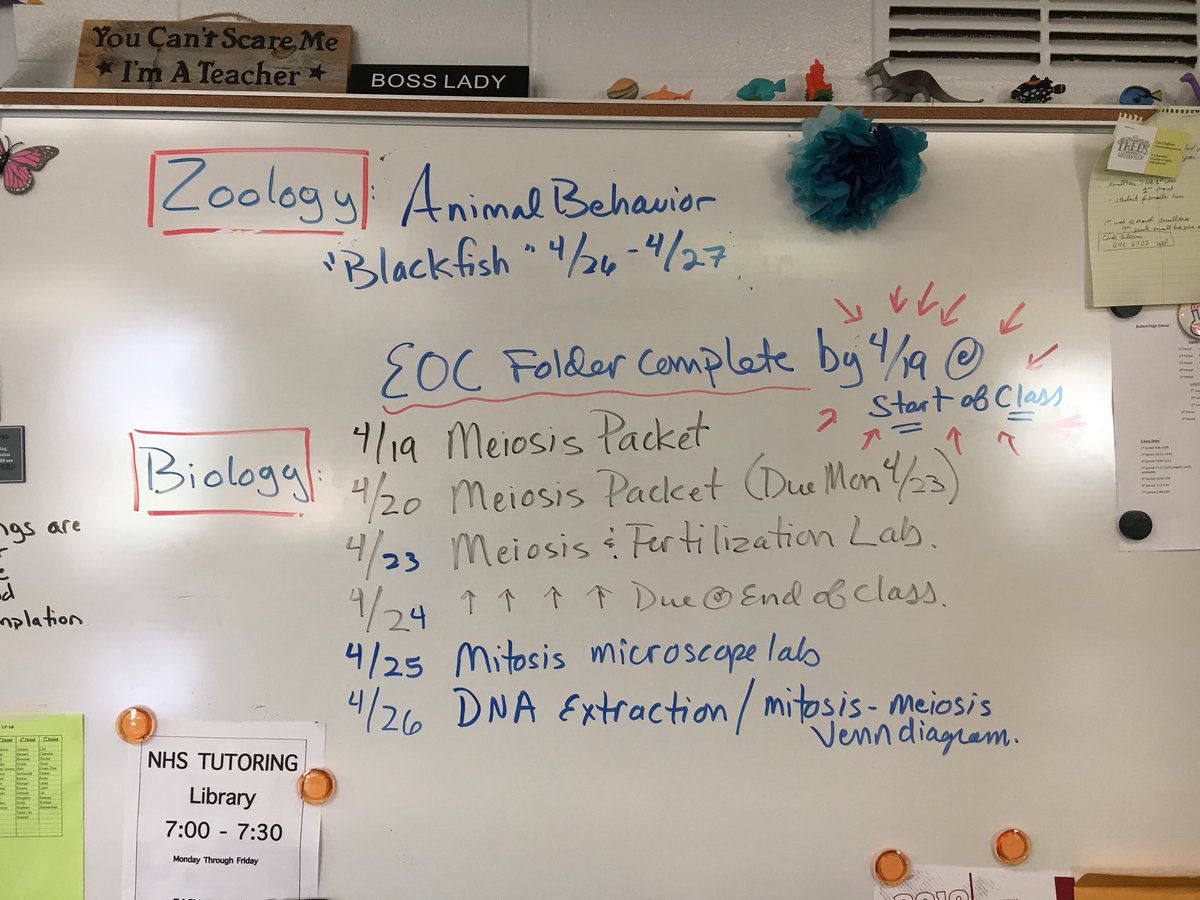 You Can't Scare Me
★ I'm A Teacher ★
BOSS LADY
Zoology: Animal Behavior
"Blackfish" 4/26 - 4/27
EOC Folder complete by 4/19 @
Start of Class
Biology:
4/19 Meiosis Packet
4/20 Meiosis Packet (Due Mon 4/23)
4/23 Meiosis & Fertilization Lab.
4/24 ↑ ↑ ↑ ↑ Due @ End of Class.
4/25 Mitosis microscope lab
4/26 DNA Extraction / mitosis - meiosis
Venn diagram.
ngs are
mplation
NHS TUTORING
Library
7:00 - 7:30
Monday Through Friday
TREES
LOUISVILLE
Ballard High School
17-18